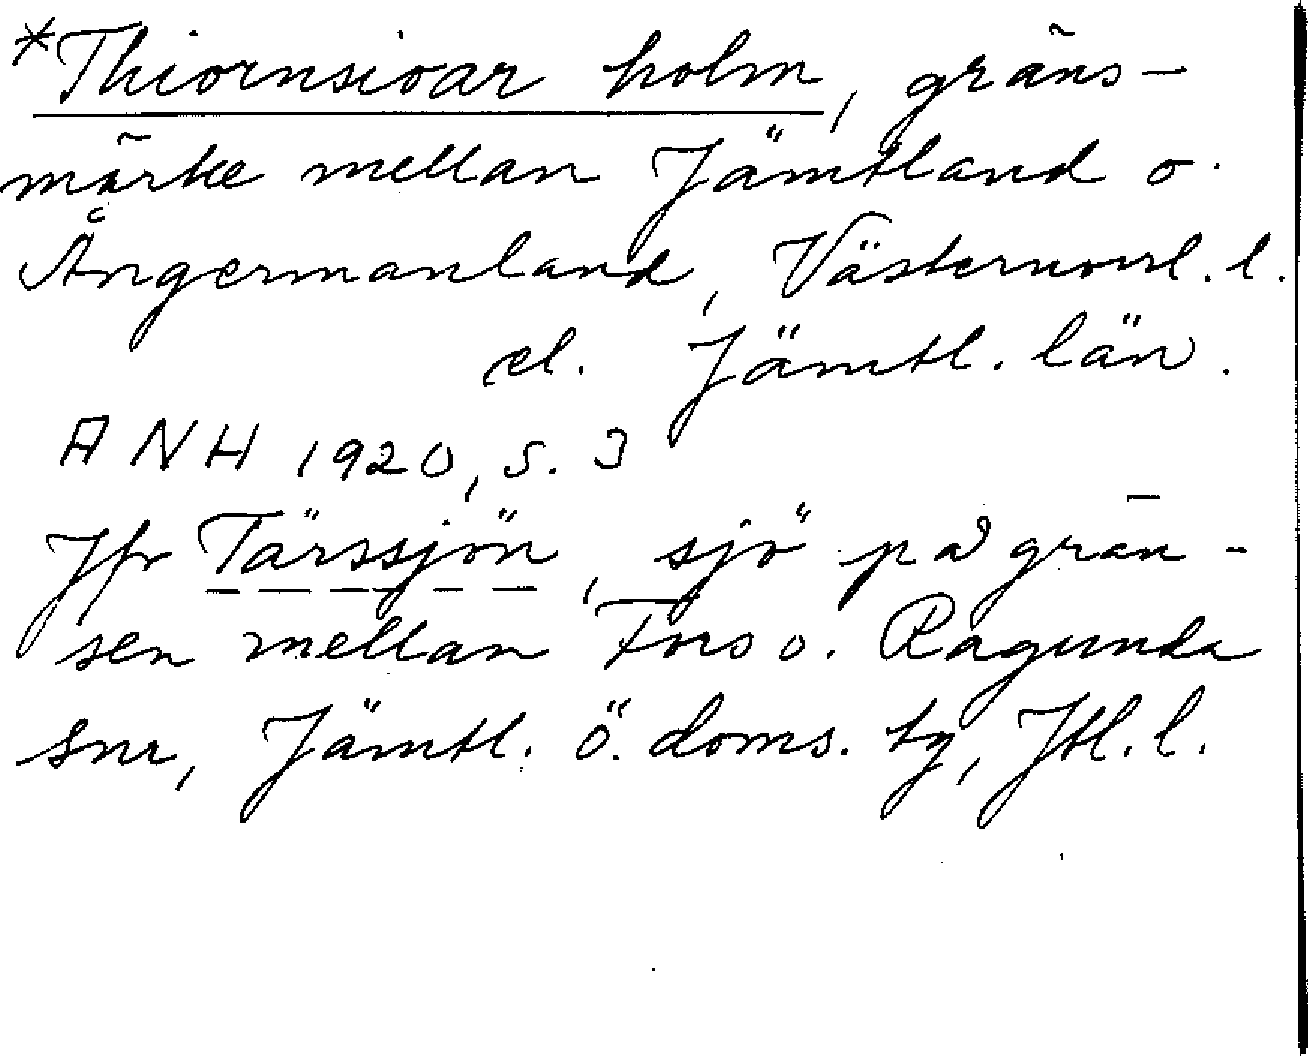 *Thiornsioar holm, gräns-
märke mellan Jämtland o.
Ångermanland, Västernorrl. l.
el. Jämtl. län.
ANH 1920, s. 3
Jfr Tärssjön, sjö på grän-
sen mellan Fors o. Ragunda
snr, Jämtl. ö. doms. tg, Jtl. l.